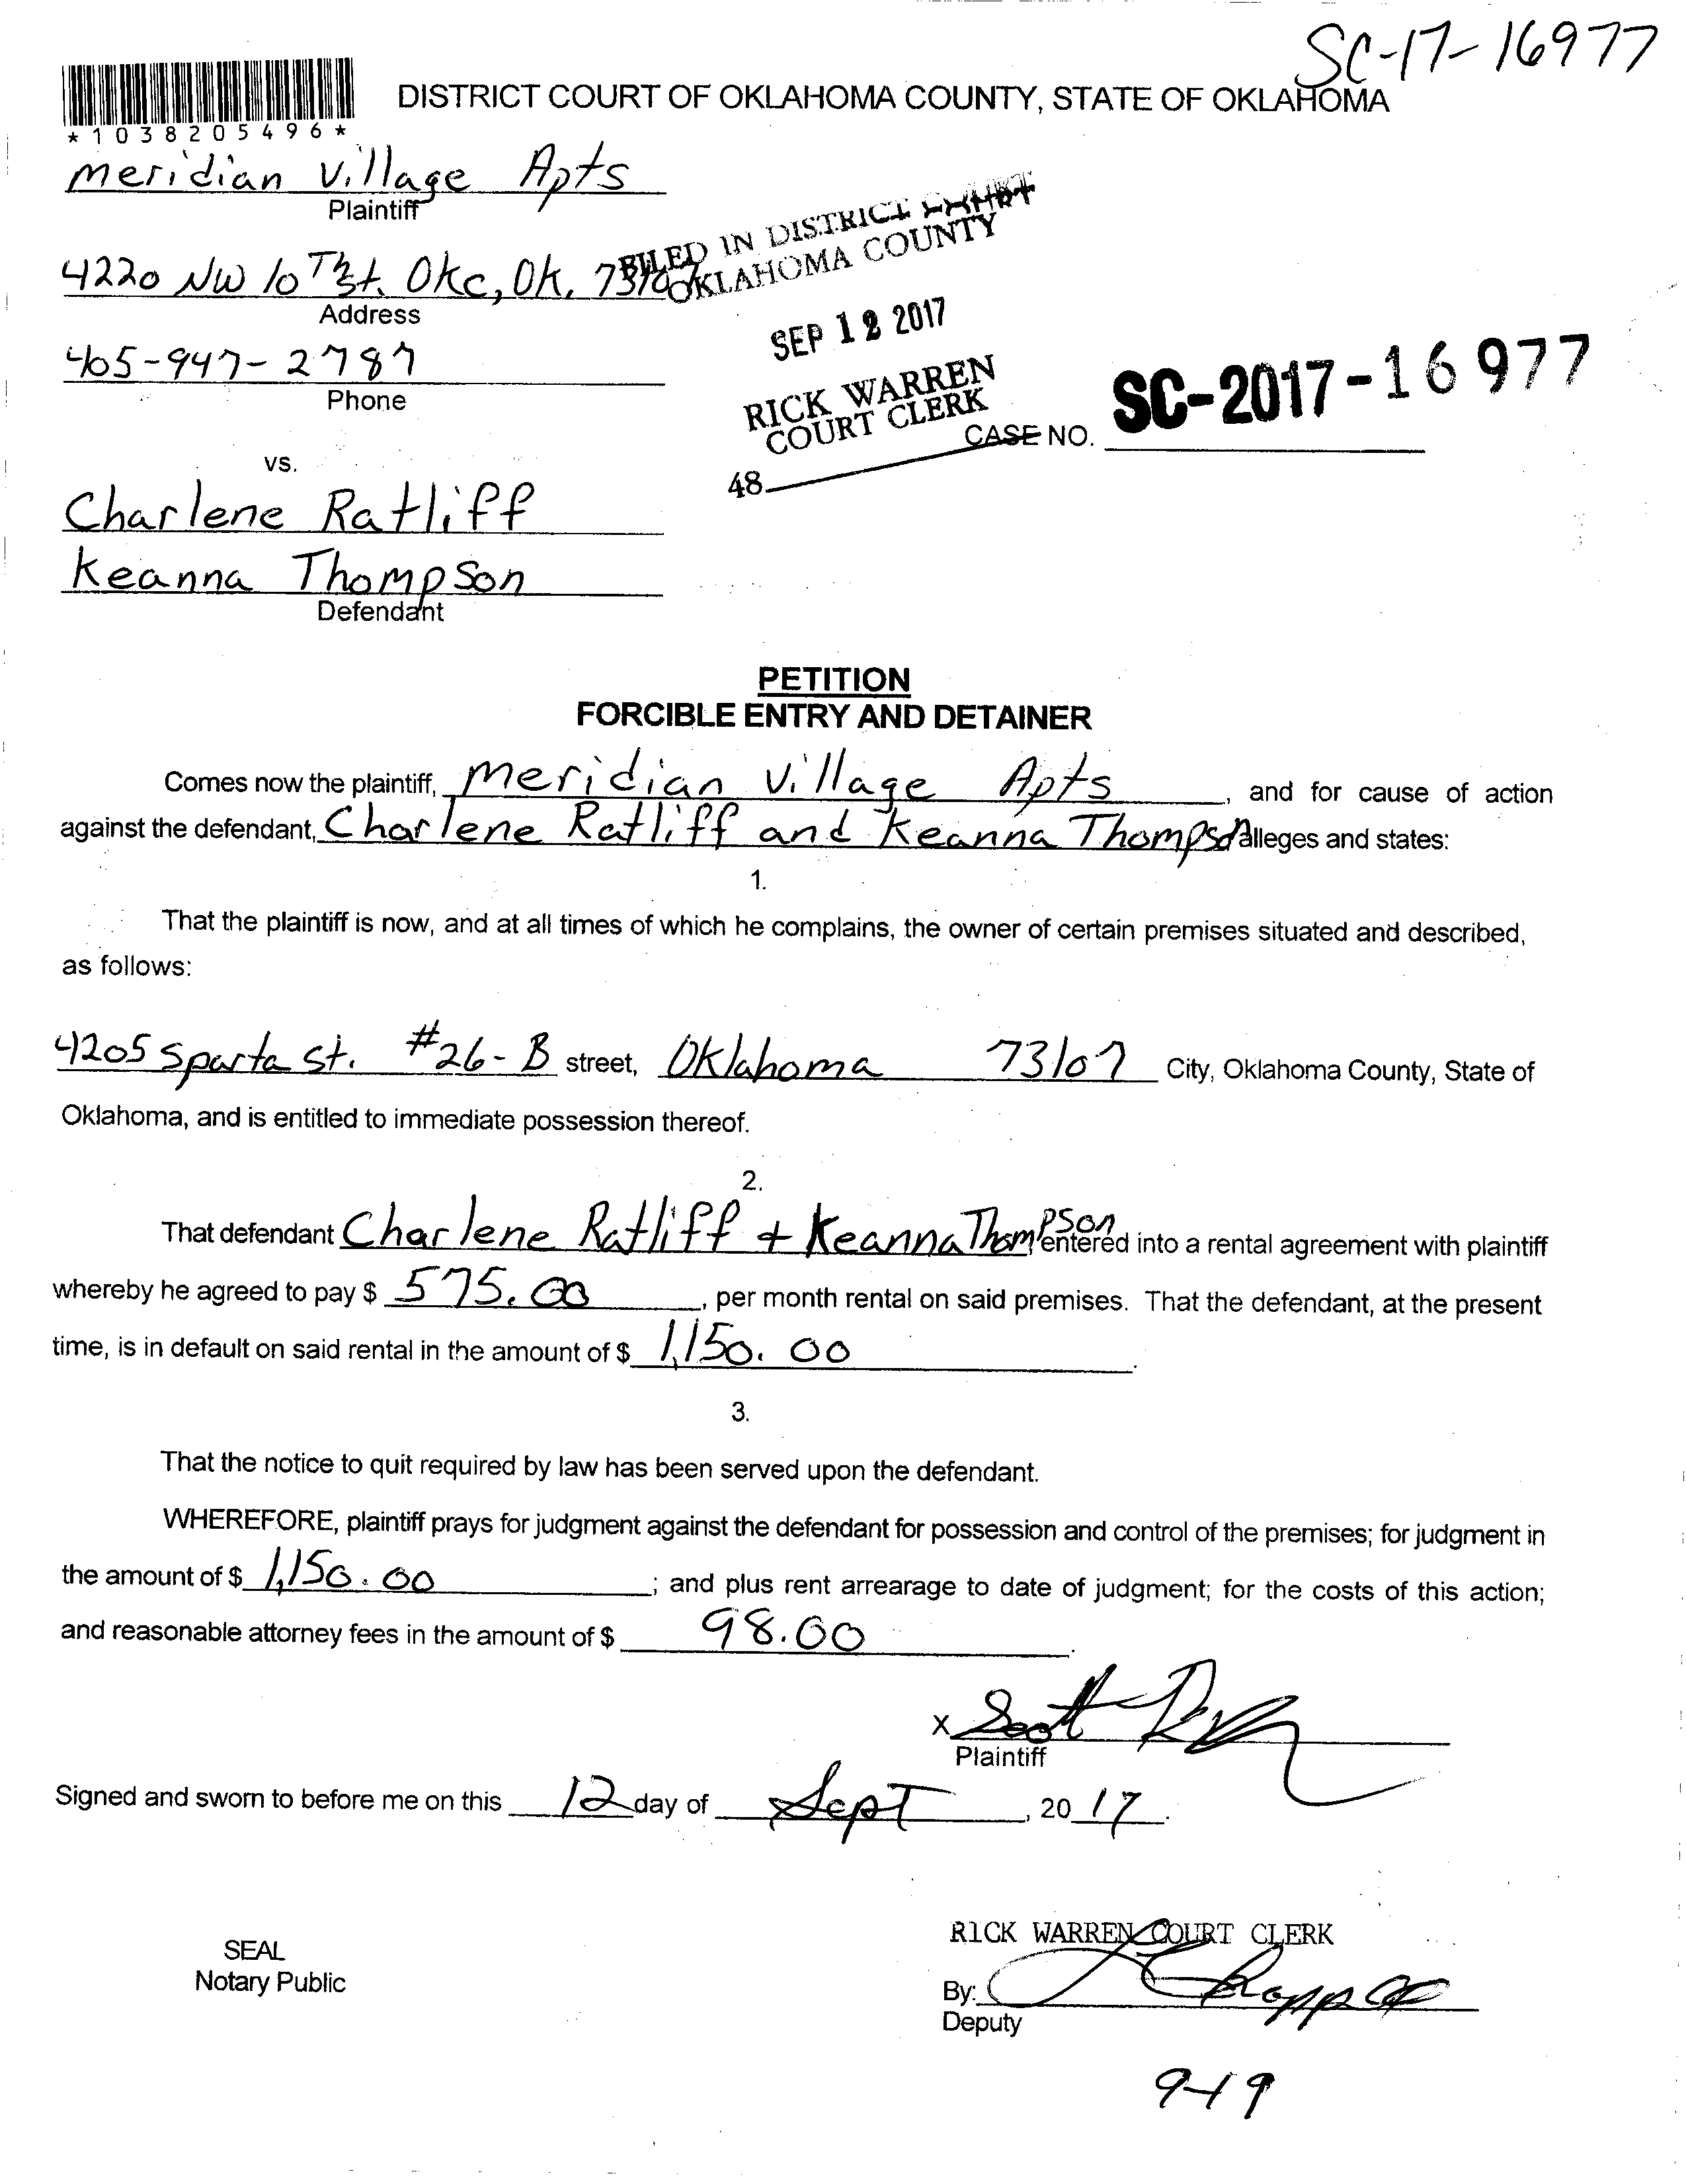 SC-17-16977
*1038205496*
DISTRICT COURT OF OKLAHOMA COUNTY, STATE OF OKLAHOMA
Meridian Village Apts
Plaintiff
4220 NW 10 Th St. Okc, Ok. 73107
Address
405-947-2787
Phone
FILED IN DISTRICT COURT
OKLAHOMA COUNTY
SEP 12 2017
RICK WARREN
COURT CLERK
48
CASE NO. SC-2017-16977
vs.
Charlene Ratliff
Keanna Thompson
Defendant
PETITION
FORCIBLE ENTRY AND DETAINER
Comes now the plaintiff, Meridian Village Apts, and for cause of action
against the defendant, Charlene Ratliff and Keanna Thompson alleges and states:
1.
That the plaintiff is now, and at all times of which he complains, the owner of certain premises situated and described,
as follows:
4205 Sparta St. #26-B street, Oklahoma 73107 City, Oklahoma County, State of
Oklahoma, and is entitled to immediate possession thereof.
2.
That defendant Charlene Ratliff + Keanna Thompson entered into a rental agreement with plaintiff
whereby he agreed to pay $ 575.00, per month rental on said premises. That the defendant, at the present
time, is in default on said rental in the amount of $ 1,150.00.
3.
That the notice to quit required by law has been served upon the defendant.
WHEREFORE, plaintiff prays for judgment against the defendant for possession and control of the premises; for judgment in
the amount of $ 1,150.00; and plus rent arrearage to date of judgment; for the costs of this action;
and reasonable attorney fees in the amount of $ 98.00.
X Scott
Plaintiff
Signed and sworn to before me on this 12 day of Sept, 20 17.
SEAL
Notary Public
RICK WARREN COURT CLERK
By:
Deputy
9-19